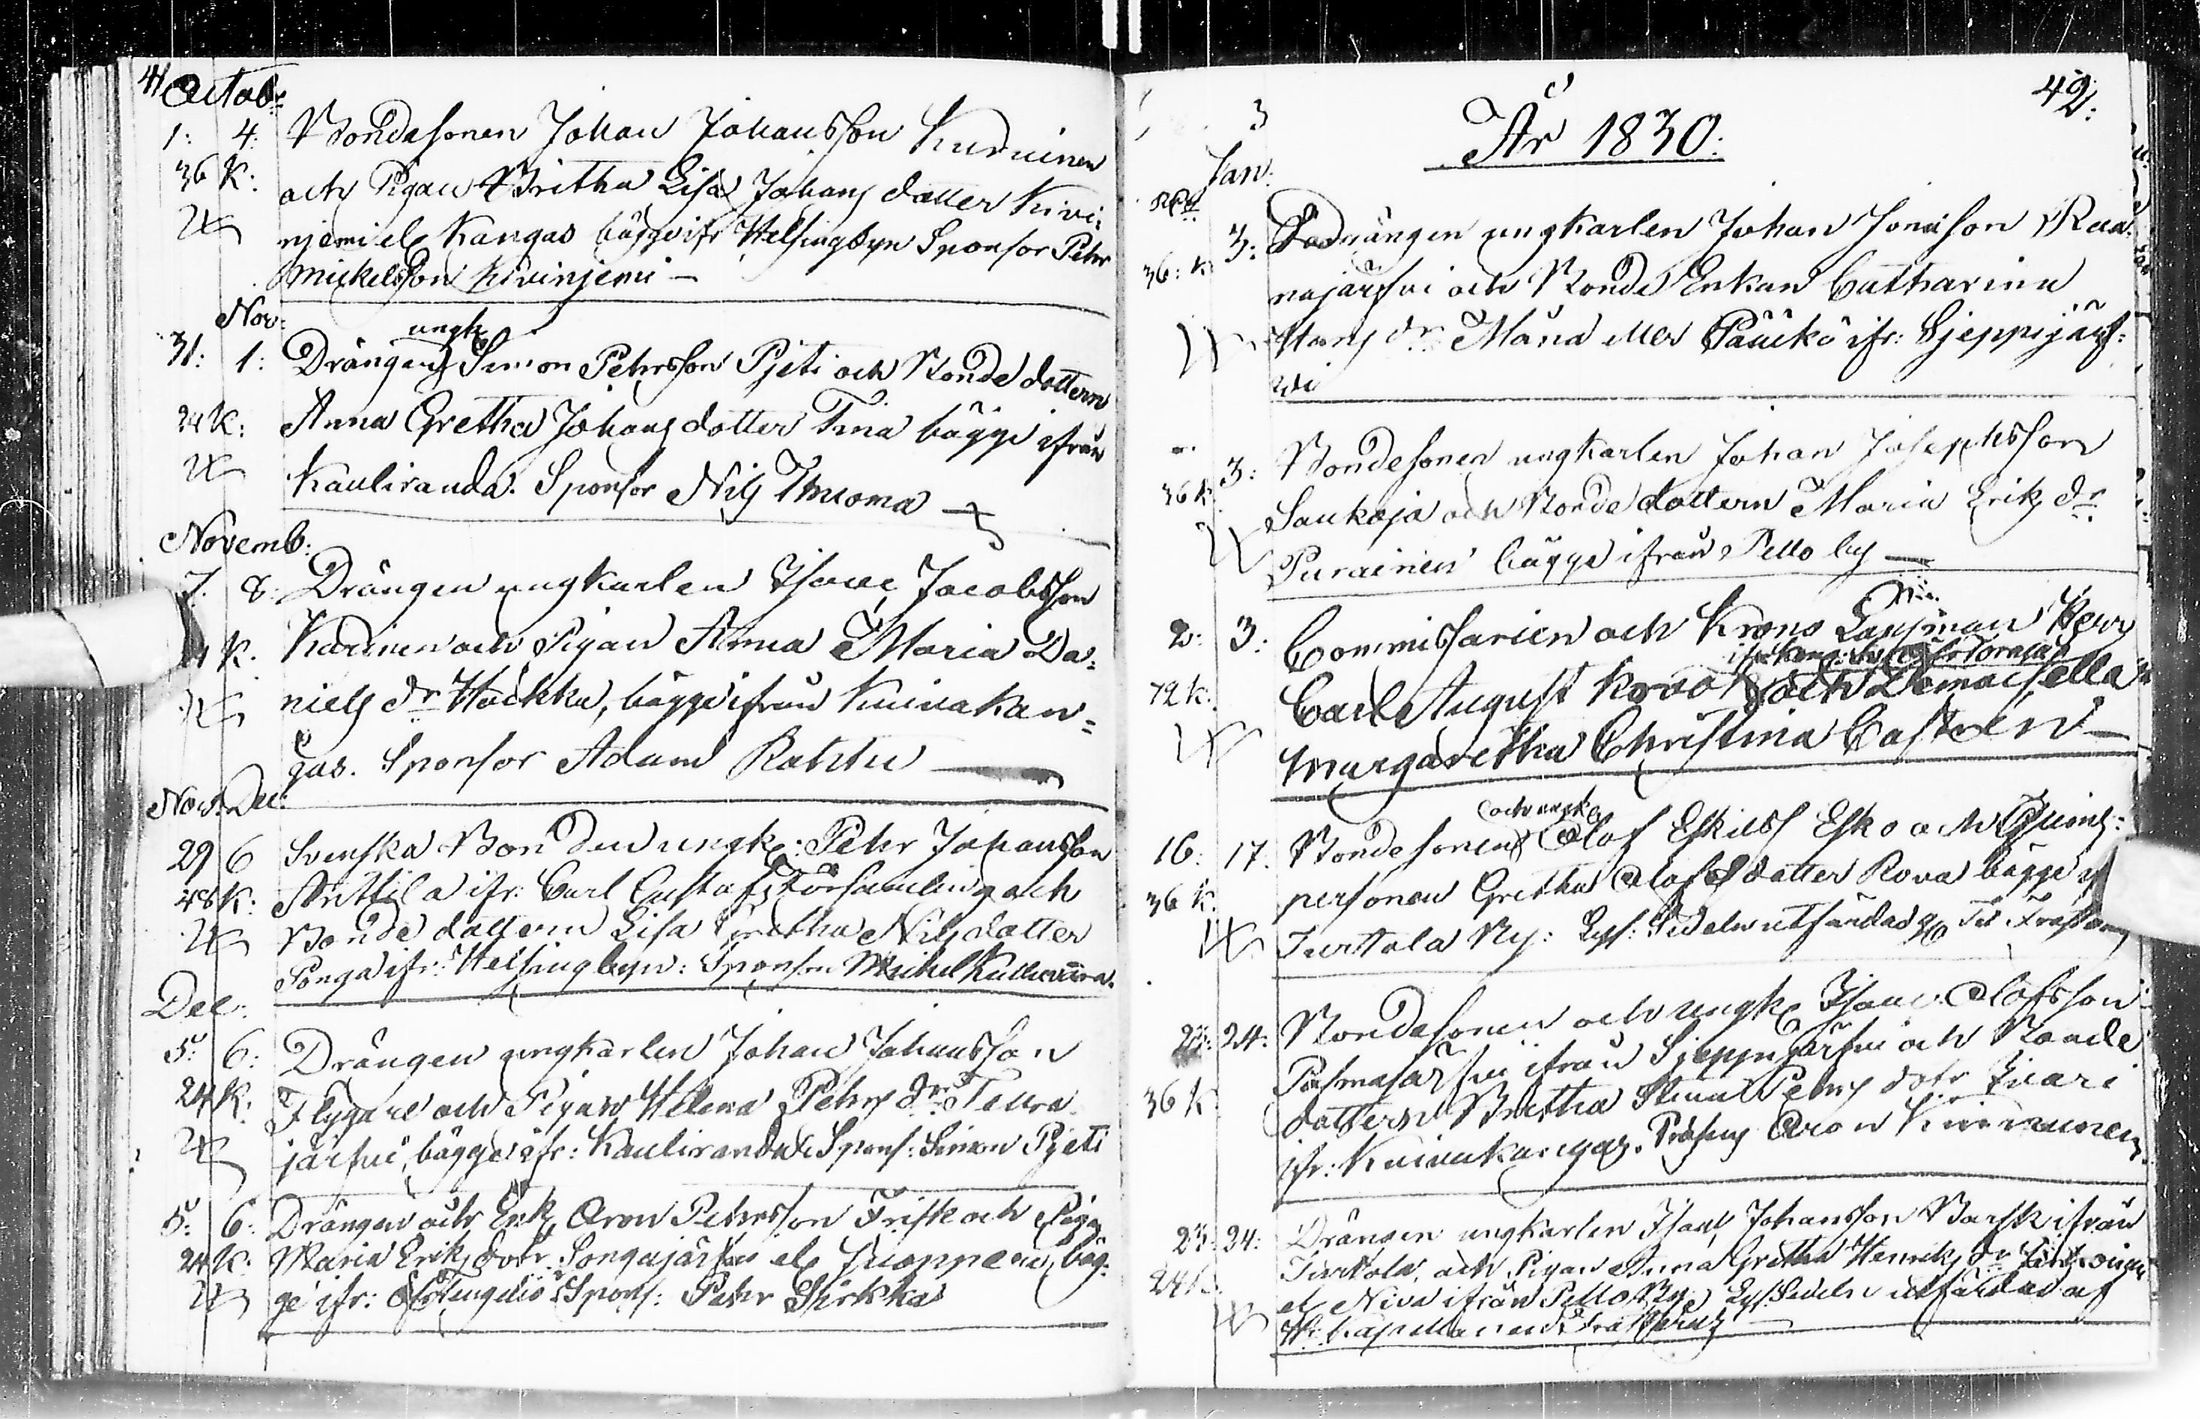 41
Octob:
1: 4: Bondesonen Johan Johansson Kurvinen
36 K: och Pigan Britha Lisa Johans dotter Kivi:
njemi el Kangas bägge ifr Helsingbyn Sponsor Pehr
Mickelsson Kivinjemi —
Nov:
ungk
31: 1: Drängen Simon Pehrsson Pjeti och Bonde dottern
24 K: Anna Gretha Johans dotter Tina bägge ifrån
Kauliranda. Sponsor Nils Thuoma
Novemb:
7. 8: Drängen ungkarlen Isaac Jacobsson
K. Karinen och Pigan Anna Maria Da=
niels dr Hackku, bägge ifrån Kuivakan=
gas. Sponsor Adam Rahtu
Nov: Dec:
29 6 Svenska Bonden ungk: Pehr Johansson
48 K: Anttila ifr: Carl Gustafs Församling och
Bonde dottern Lisa Gretha Nils dotter
Ponga ifr: Helsingbyn: Sponsor Mickel
Dec:
5: 6: Drängen ungkarlen Johan Johansson
24 K: Flygare och Pigan Helena Pehrs dr Teura
järfvi, bägge ifr: Kauliranda Spons: Simon Pjeti
5: 6: Drängen och Enk Aron Pehrsson Frisk och Pigan
24 K: Maria Eriks dotr Songajärfvi el Juoppeni, bäg:
ge ifr: Öfr Tengeliö Spons: Pehr Sirkka
42:
År 1830:
3
Jan:
3: Sadrängen ungkarlen Johan Jonasson Rua
36: K najärfvi och Bonde Enkan Catharina
Hans dr Måna eller Pääckö ifr: Sjeppijärf:
wi
3: Bondesonen ungkarlen Johan Josephsson
36 K Saukoja och Bonde dottern Maria Eriks dr
Purainen bägge ifrån Pello by —
2: 3: Commissarien och Krono Länsman Herr
72 K: Carl August och Demoiselle
Margaretha Christina Castrén —
och ungk
16: 17. Bondesonen Olof Eskilss Esko och Qvins:
36 K. personen Gretha Olofs dotter Rova bägge
Turtola By: Lysf: Sedeln utfärdad
23: 24: Bondesonen och ungk Isac Olofsson
36 K Palmajärfvi ifrån Sjeppijärfvi och Bonde
dottern Britha Stina Pehrs dotr Juari
ifr: Kuivakangas. Aron
23: 24: Drängen ungkarlen Isac Johansson Barsk ifrån
24 K Turtola, och Pigan Anna Gretha Henriks dr
el Niva ifrån Pello By: Lysf: Sedeln utfärdad af